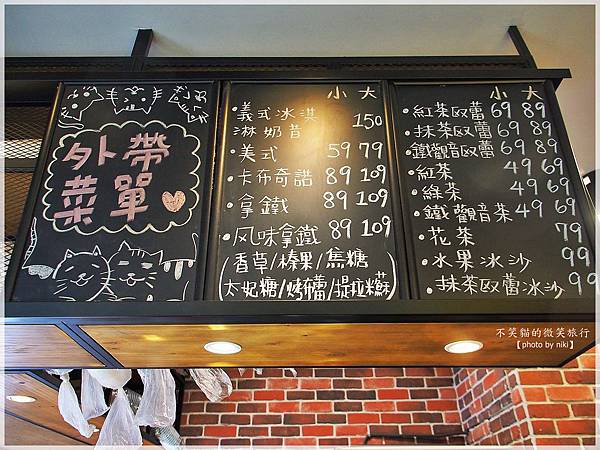 外帶
菜單
小 大
・義式冰淇
淋奶昔 150
・美式 59 79
・卡布奇諾 89 109
・拿鐵 89 109
・风味拿鐵 89 109
(香草/榛果/焦糖
太妃糖/烤布蕾/提拉米蘇)
小 大
・紅茶欧蕾 69 89
・抹茶欧蕾 69 89
・鐵觀音欧蕾 69 89
・紅茶 49 69
・綠茶 49 69
・鐵觀音茶 49 69
・花茶 79
・水果冰沙 99
・抹茶欧蕾冰沙 99
不笑貓的微笑旅行
【photo by niki】